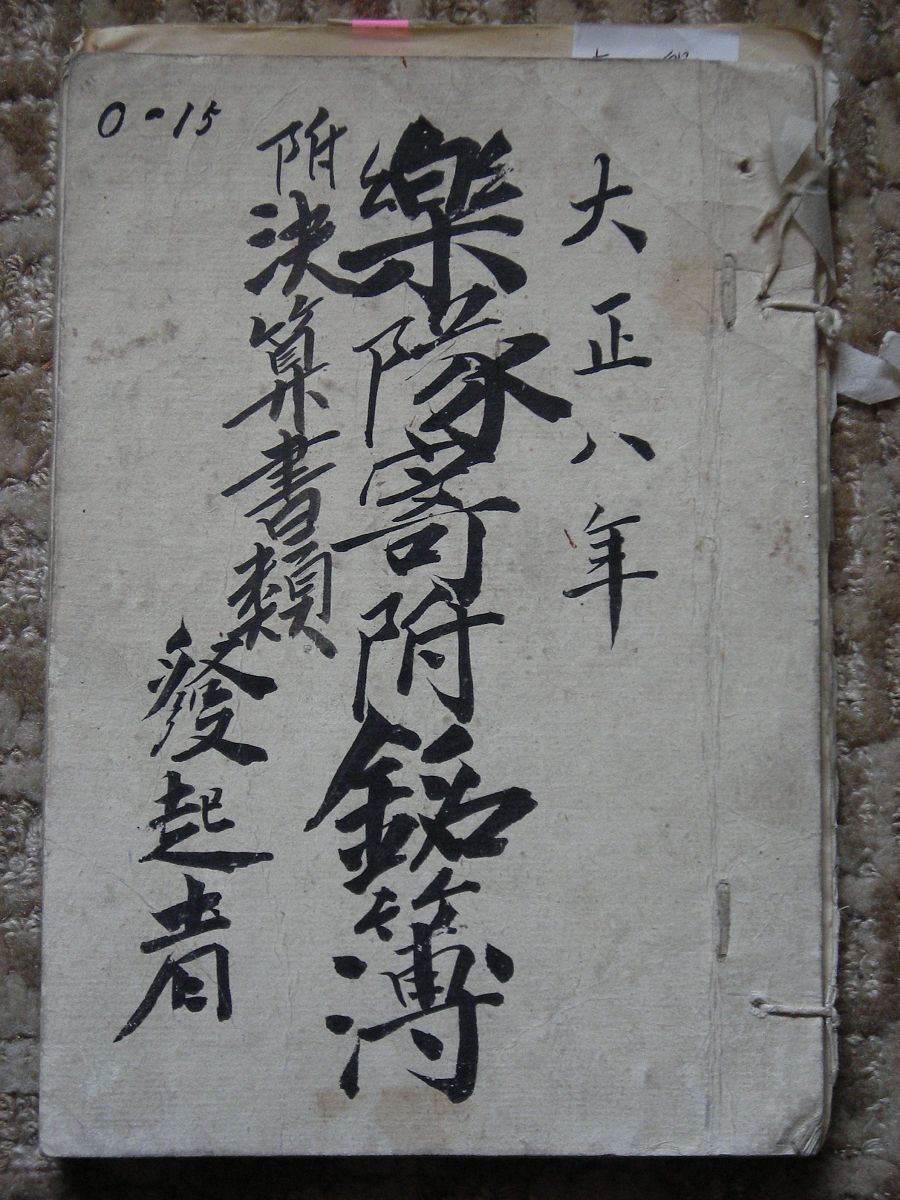 大正八年
樂隊寄附銘簿
附決算書類
發起者
0-15